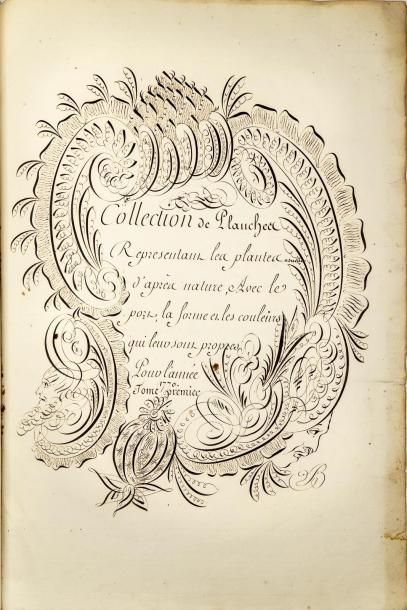 Collection de Planches
Representant les plantes
d'après nature Avec le
port, la forme et les couleurs
qui leur sont propres,
Pour l'année
1770.
Tome premier